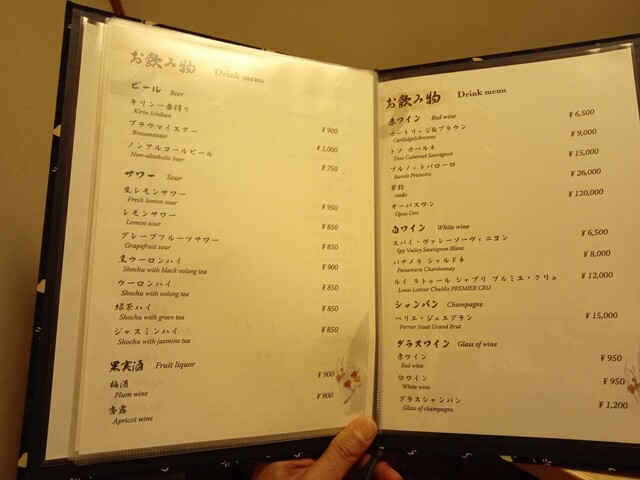 お飲み物 Drink menu
ビール Beer
キリン一番搾り
Kirin Ichiban
¥900
ブラウマイスター
Braumeister
¥1,000
ノンアルコールビール
Non-alcoholic beer
¥750
サワー Sour
生レモンサワー
Fresh lemon sour
¥950
レモンサワー
Lemon sour
¥850
グレープフルーツサワー
Grapefruit sour
¥850
黒ウーロンハイ
Shochu with black oolong tea
¥900
ウーロンハイ
Shochu with oolong tea
¥850
緑茶ハイ
Shochu with green tea
¥850
ジャスミンハイ
Shochu with jasmine tea
¥850
果実酒 Fruit liquor
梅酒
Plum wine
¥900
杏露
Apricot wine
¥900
お飲み物 Drink menu
赤ワイン Red wine
カートリッジ&ブラウン
Cartlidge&Browne
¥6,500
トソ カベルネ
Toso Cabernet Sauvignon
¥9,000
プルノットバローロ
Barolo Prunotto
¥15,000
紫鈴
rindo
¥26,000
オーパスワン
Opus One
¥120,000
白ワイン White wine
スパイ・ヴァレーソーヴィニヨン
Spy Valley Sauvignon Blanc
¥6,500
パナメラ シャルドネ
Panamera Chardonnay
¥8,000
ルイ ラトゥール シャブリ プルミエ・クリュ
Louis Latour Chablis PREMIER CRU
¥12,000
シャンパン Champagne
ペリエ・ジュエブラン
Perrier Jouet Grand Brut
¥15,000
グラスワイン Glass of wine
赤ワイン
Red wine
¥950
白ワイン
White wine
¥950
グラスシャンパン
Glass of champagne
¥1,200